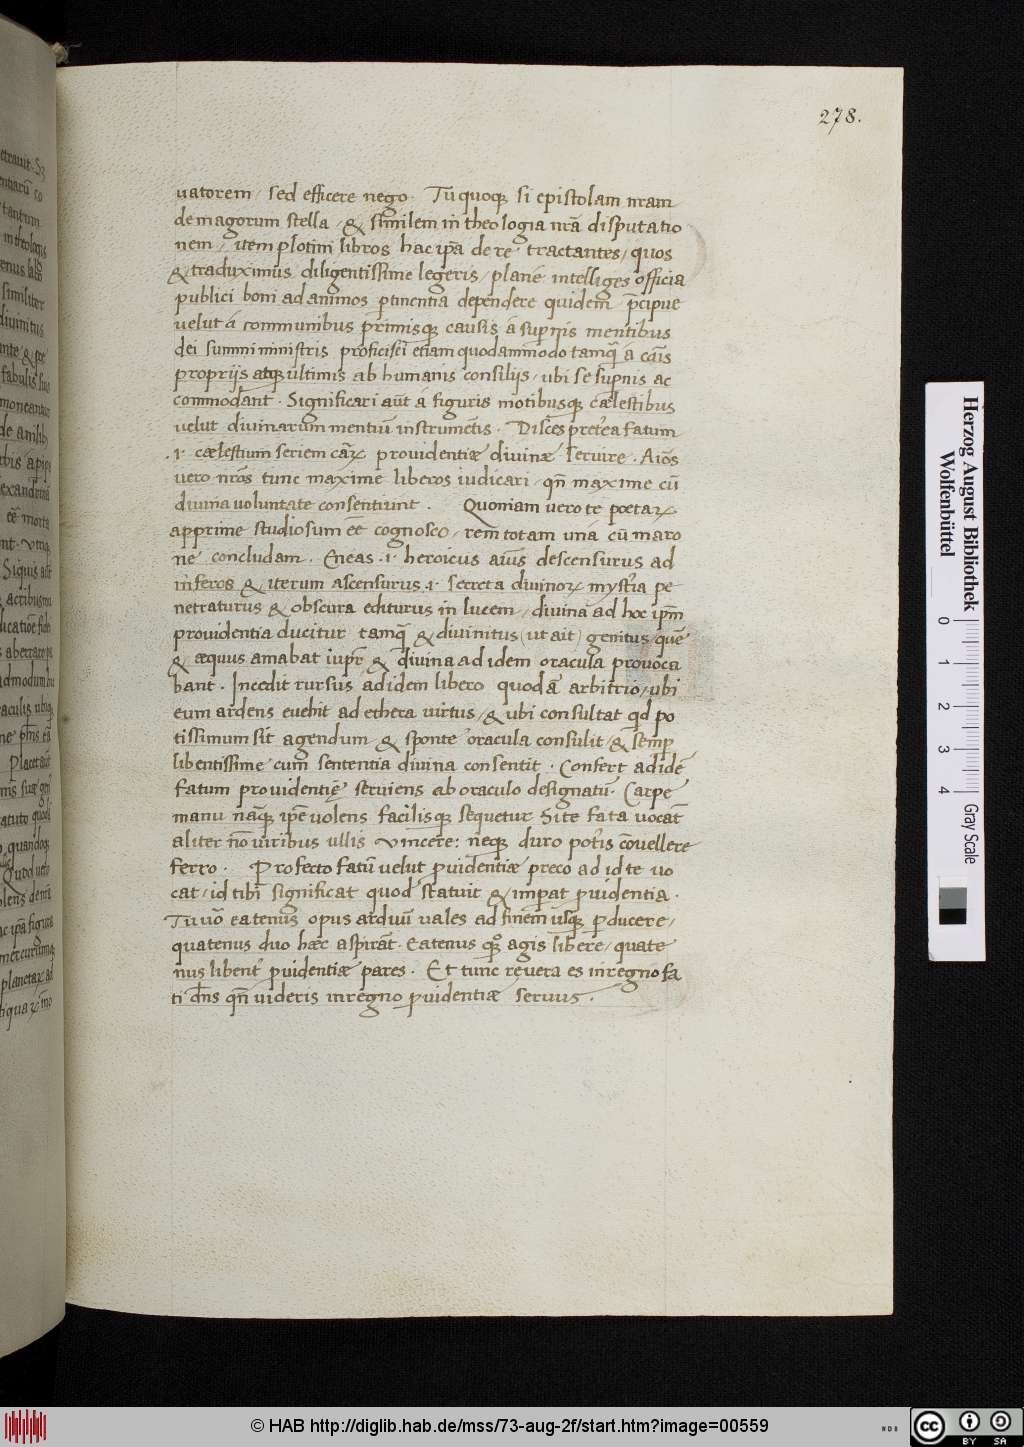 278.
uatorem, sed efficere nego. Tu quoqꝫ si epistolam nr̄am
de magorum stella, & similem in theologia nr̄ā disputatio
nem, item plotini libros hac ip̄a de re tractantes, quos
& traduximus diligentissime legeris, plane intelliges officia
publici boni ad animos ꝑtinentia dependere quidem p̄cipue
uelut á communibus primisqꝫ causis á suꝑnis mentibus
dei summi ministris proficisci etiam quodammodo tamq̄ á cāis
proprijs atqꝫ ultimis ab humanis consilijs, ubi se suꝑnis ac
commodant. Significari aūt á figuris motibusqꝫ cælestibus
uelut diuinarum mentiū instrumētis. Disces pret'ea fatum
.i. cælestium seriem cāꝝ prouidentiæ diuinæ seruire. Aīos
uero nr̄os tunc maxime liberos iudicari, qn̄ maxime cū
diuina uoluntate consentiunt. Quoniam uero te poetaꝝ
apprime studiosum eē cognosco, rem totam una cū maro
ne concludam. Eneas .i. heroicus aīus descensurus ad
inferos & iterum ascensurus .i. secreta diuinoꝝ myst'ia pe
netraturus & obscura editurus in lucem, diuina ad hoc ip̄m
prouidentia ducitur tamq̄ & diuinitus (ut ait) genitus, quē
& æquus amabat iupr̄ & diuina ad idem oracula prouoca
bant. Incedit rursus ad idem libero quodā arbitrio, ubi
eum ardens euehit ad ethera uirtus, & ubi consultat qd po
tissimum sit agendum & sponte oracula consulit, & semꝑ
libentissime cum sententia diuina consentit. Confert ad idē
fatum prouidentię seruiens ab oraculo designatū. Carpe
manu nāqꝫ ip̄e uolens facilisqꝫ sequetur Si te fata uocāt
aliter nō uiribus ullis vincere: neqꝫ duro pot'is cōuellere
ferro. Profecto fatū uelut ꝓuidentiæ preco ad id te uo
cat, id tibi significat quod statuit & imꝑat ꝓuidentia.
Tu uō eatenus opus arduū uales ad finem usqꝫ ꝑducere,
quatenus duo hæc aspirāt. Eatenus qꝫ agis libere, quate
nus libent' ꝓuidentiæ pares. Et tunc reuera es in regno fa
ti dn̄s qn̄ uideris in regno ꝓuidentiæ seruus.
Herzog August Bibliothek
Wolfenbüttel
0 1 2 3 4 Gray Scale
© HAB http://diglib.hab.de/mss/73-aug-2f/start.htm?image=00559
cc BY SA